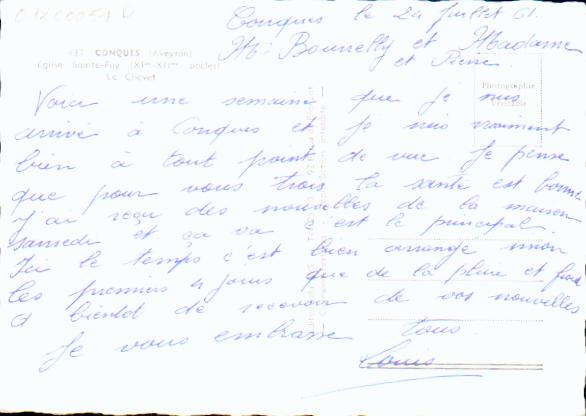 Conques le 24 Juillet 61.
Mr Bounelly et Madame
et Pierre
437 CONQUES (Aveyron)
Eglise Sainte-Foy (XIme-XIIme siècles)
Le Chevet
Photographie
véritable
Voici une semaine que je suis
arrivé à Conques et je suis vraiment
bien à tout point de vue je pense
que pour vous trois la santé est bonne
J'ai reçu des nouvelles de la maison
samedi et ça va c'est le principal.
Ici le temps c'est bien arrangé sinon
les premiers 4 jours que de la pluie et froid
A bientôt de recevoir de vos nouvelles
Je vous embrasse tous
Louis